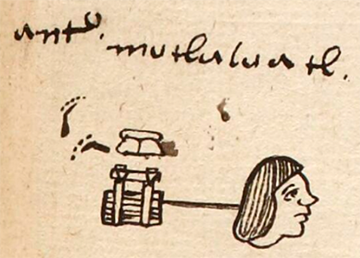 antº. motlaloatl.